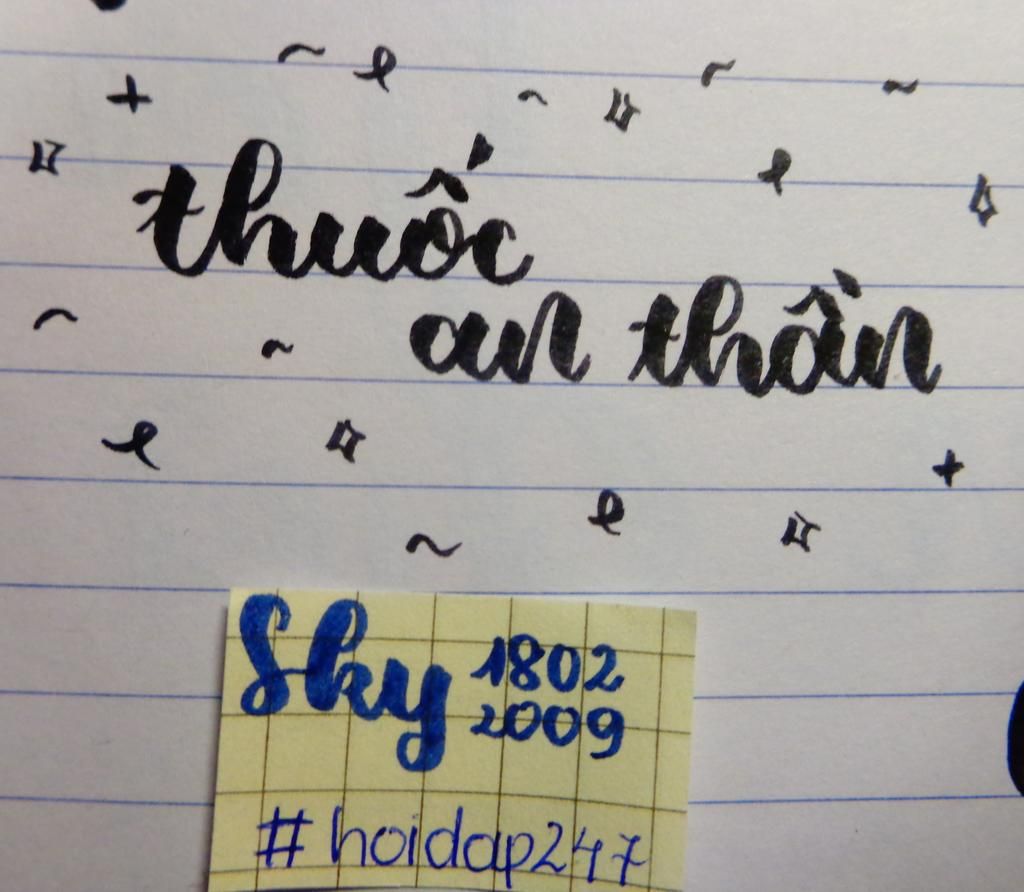 thuốc
an thần
Sky 1802
2009
#hoidap247